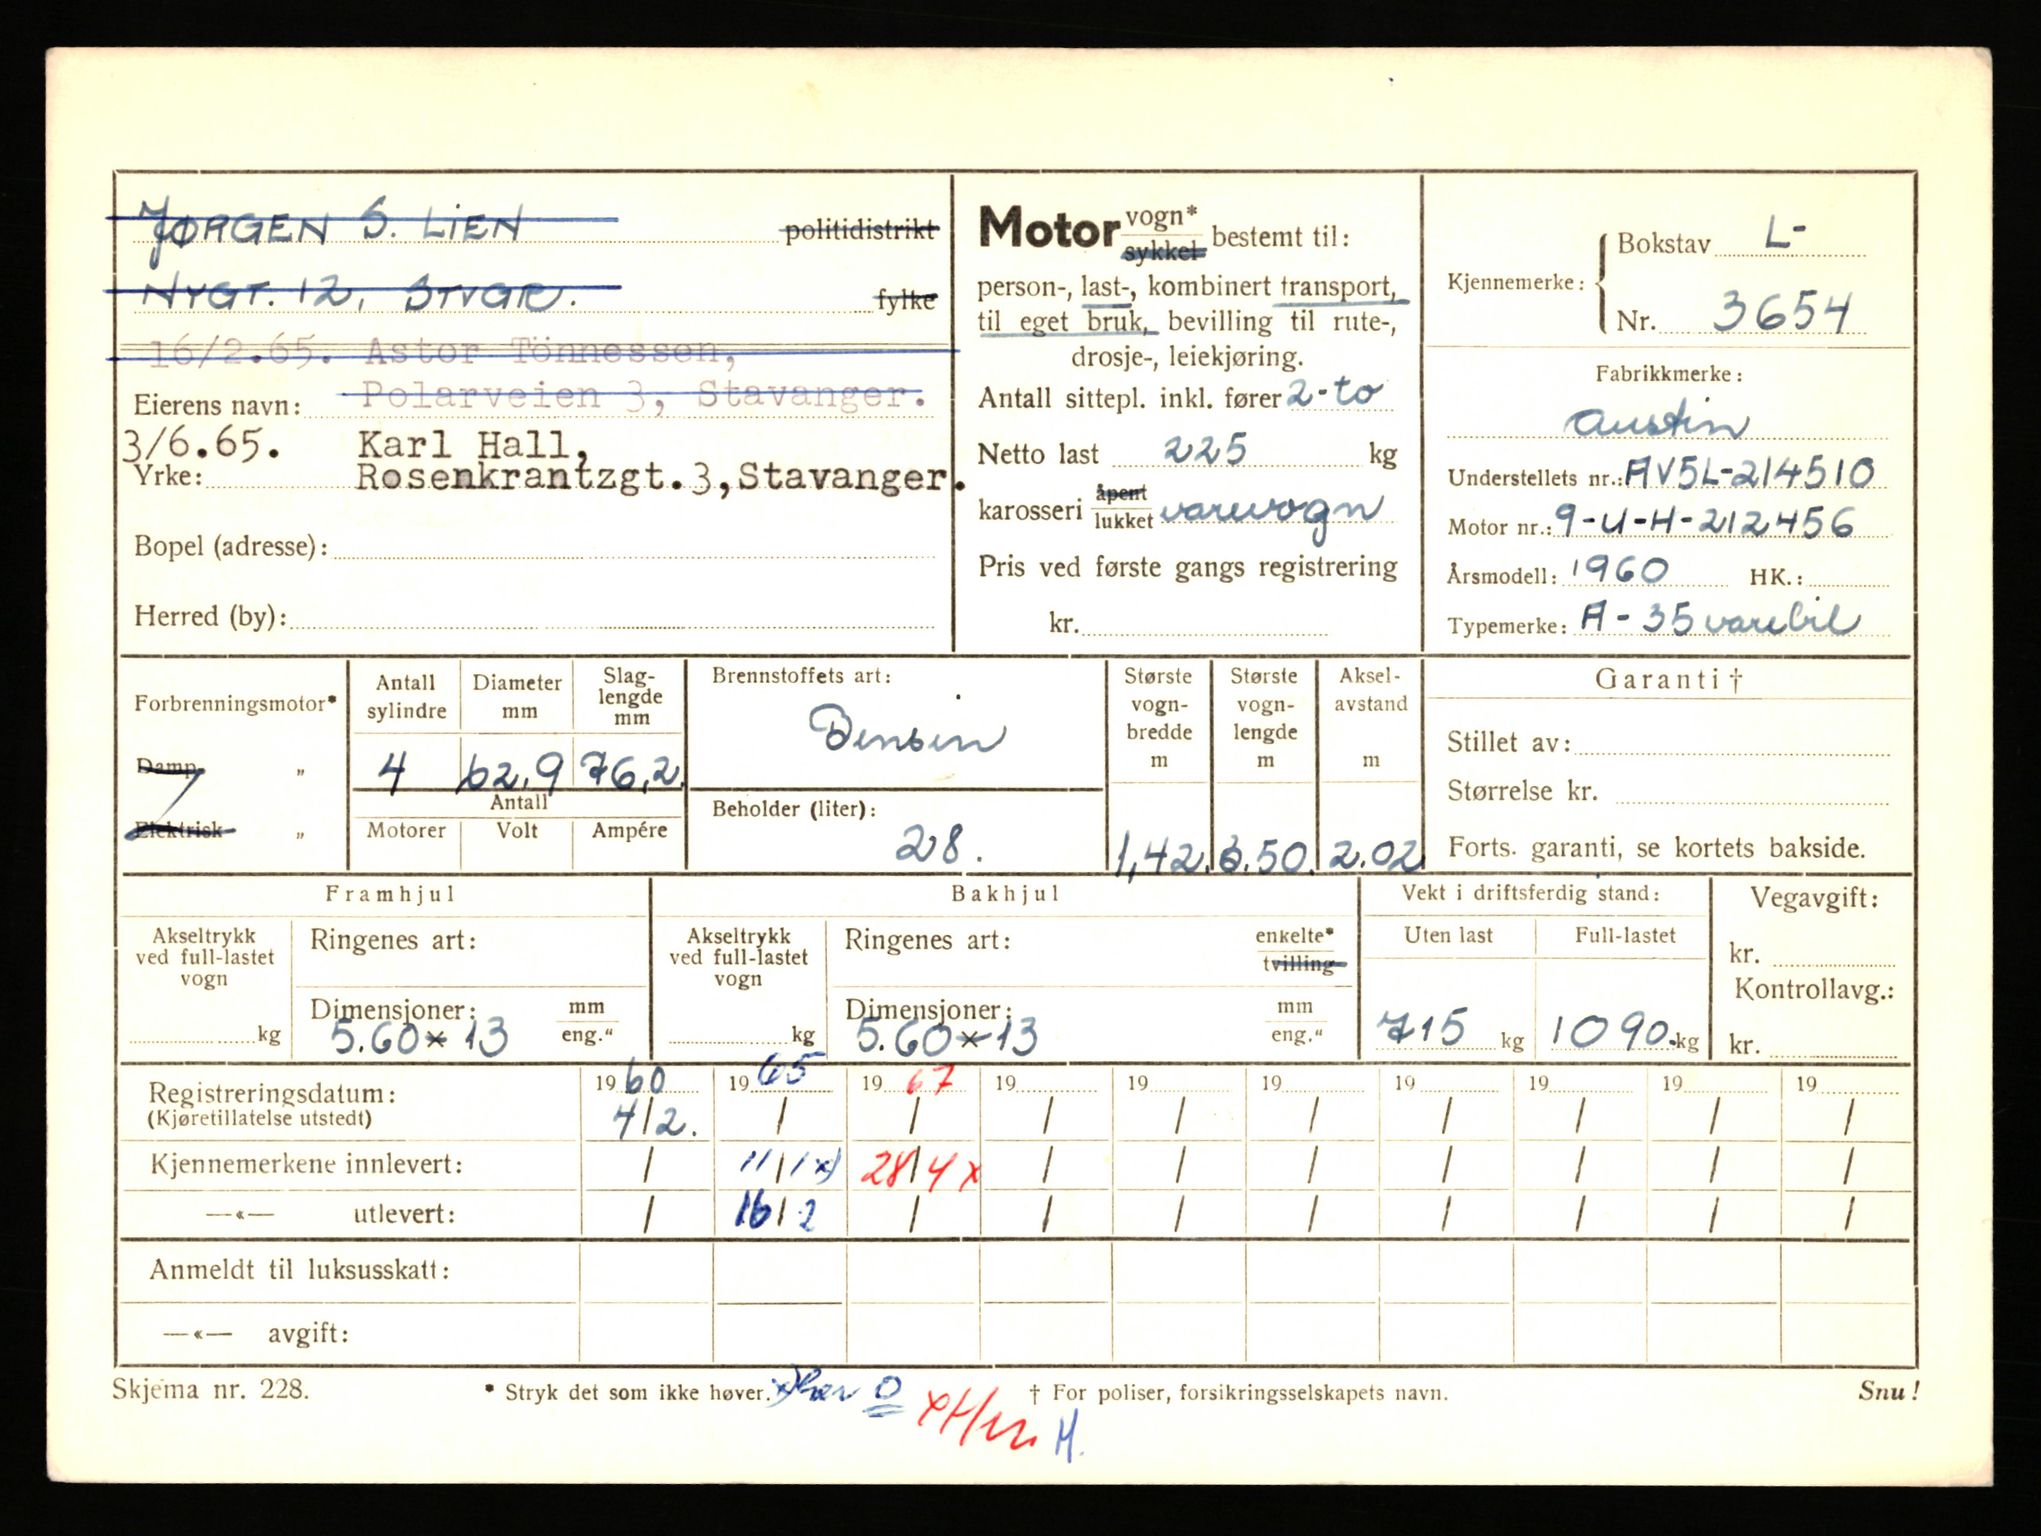 JØRGEN S. LIEN politidistrikt
NYGT. 12, STVGR. fylke
16/2.65. Astor Tönnessen,
Polarveien 3, Stavanger.
Eierens navn:
3/6.65. Karl Hall,
Yrke: Rosenkrantzgt.3,Stavanger.
Bopel (adresse):
Herred (by):
Motor vogn* sykkel bestemt til:
person-, last-, kombinert transport,
til eget bruk, bevilling til rute-,
drosje-, leiekjøring.
Antall sittepl. inkl. fører 2-to
Netto last 225 kg
karosseri åpent lukket varevogn
Pris ved første gangs registrering
kr.
Kjennemerke: Bokstav L-
Nr. 3654
Fabrikkmerke:
Austin
Understellets nr.: AV5L-214510
Motor nr.: 9-U-H-212456
Årsmodell: 1960 HK.:
Typemerke: A-35 varebil
Forbrenningsmotor*
Damp "
Elektrisk "
Antall sylindre
Diameter mm
Slag-lengde mm
4 62,9 76,2
Antall
Motorer Volt Ampére
Brennstoffets art:
Bensin
Beholder (liter):
28.
Største vogn-bredde m
Største vogn-lengde m
Aksel-avstand m
1,42. 3.50. 2.02
Garanti †
Stillet av:
Størrelse kr.
Forts. garanti, se kortets bakside.
Framhjul
Akseltrykk ved full-lastet vogn
kg
Ringenes art:
Dimensjoner: mm eng."
5.60 x 13
Bakhjul
Akseltrykk ved full-lastet vogn
kg
Ringenes art: enkelte* tvilling
Dimensjoner: mm eng."
5.60 x 13
Vekt i driftsferdig stand:
Uten last Full-lastet
715 kg 1090. kg
Vegavgift:
kr.
Kontrollavg.:
kr.
Registreringsdatum: 1960 1965 1967 19 19 19 19 19 19 19
(Kjøretillatelse utstedt) 4/2. / / / / / / / / /
Kjennemerkene innlevert: / 11/1 x) 28/4 x / / / / / / /
—«— utlevert: / 16/2 / / / / / / / /
Anmeldt til luksusskatt:
—«— avgift:
Skjema nr. 228. * Stryk det som ikke høver. x) O † For poliser, forsikringsselskapets navn. Snu!
x H.